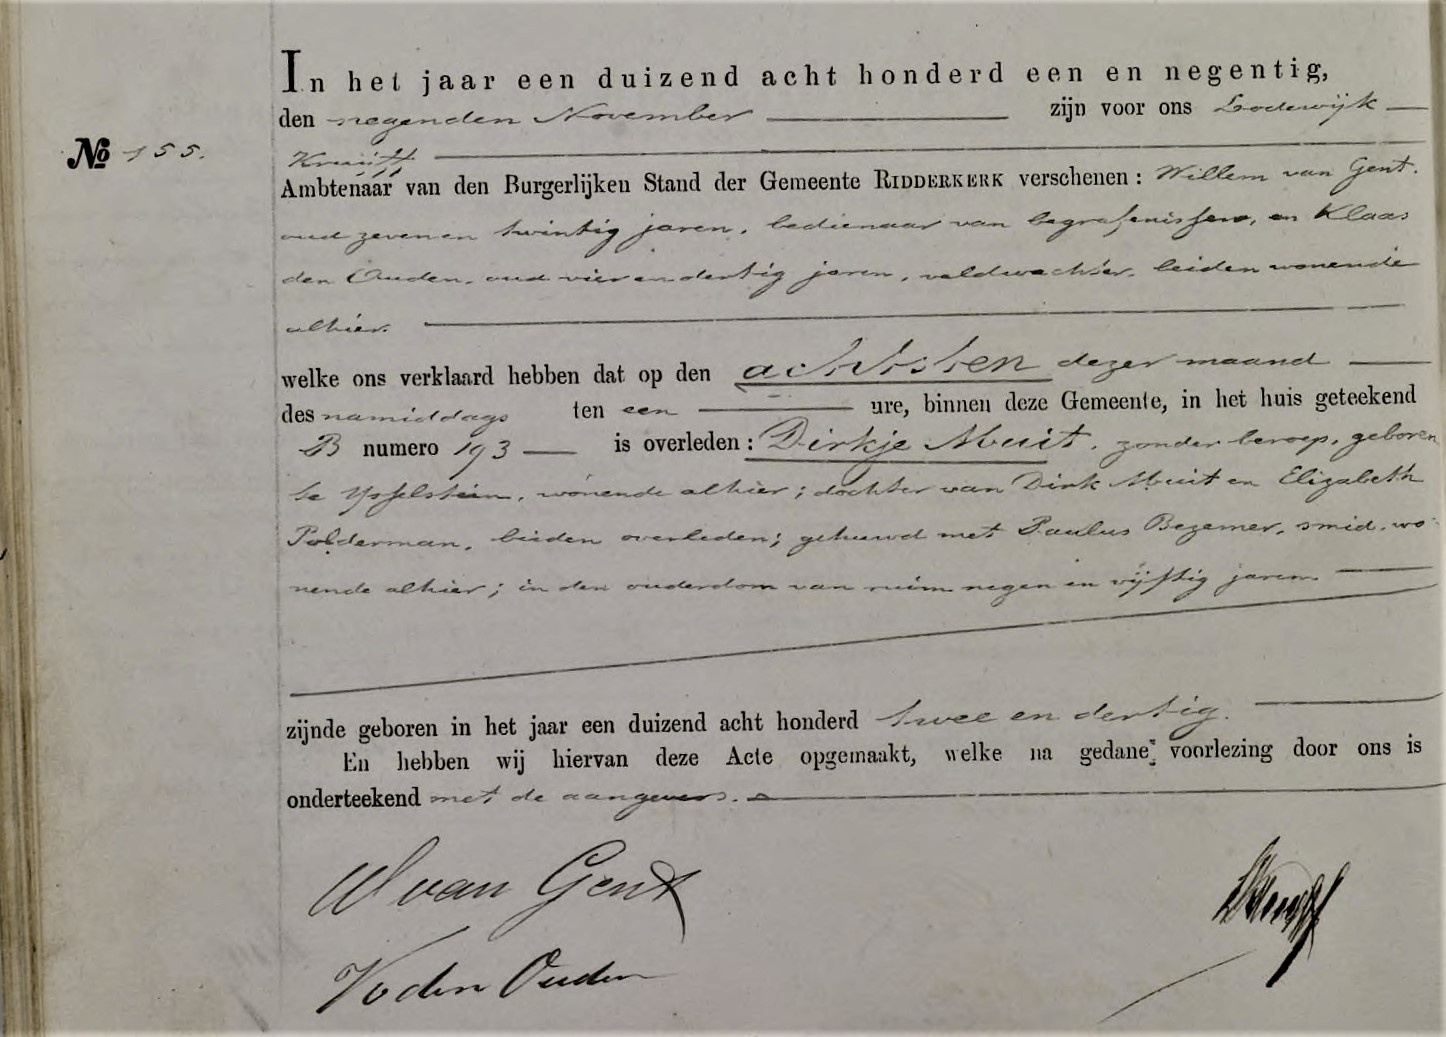 In het jaar een duizend acht honderd een en negentig,
den negenden November zijn voor ons Lodewijk
No 155.
Kruijff
Ambtenaar van den Burgerlijken Stand der Gemeente RIDDERKERK verschenen: Willem van Gent.
oud zeven en twintig jaren, bedienaar van begrafenissen, en Klaas
den Ouden, oud vier en dertig jaren, veldwachter, beiden wonende
alhier.
welke ons verklaard hebben dat op den achtsten dezer maand
des namiddags ten een ure, binnen deze Gemeente, in het huis geteekend
B numero 193 is overleden: Dirkje Muit, zonder beroep, geboren
te IJsselstein, wonende alhier; dochter van Dirk Muit en Elizabeth
Polderman, beiden overleden; gehuwd met Paulus Bezemer, smid, wo-
nende alhier; in den ouderdom van ruim negen en vijftig jaren
zijnde geboren in het jaar een duizend acht honderd twee en dertig.
En hebben wij hiervan deze Acte opgemaakt, welke na gedane voorlezing door ons is
onderteekend met de aangevers.
W van Gent
K den Ouden